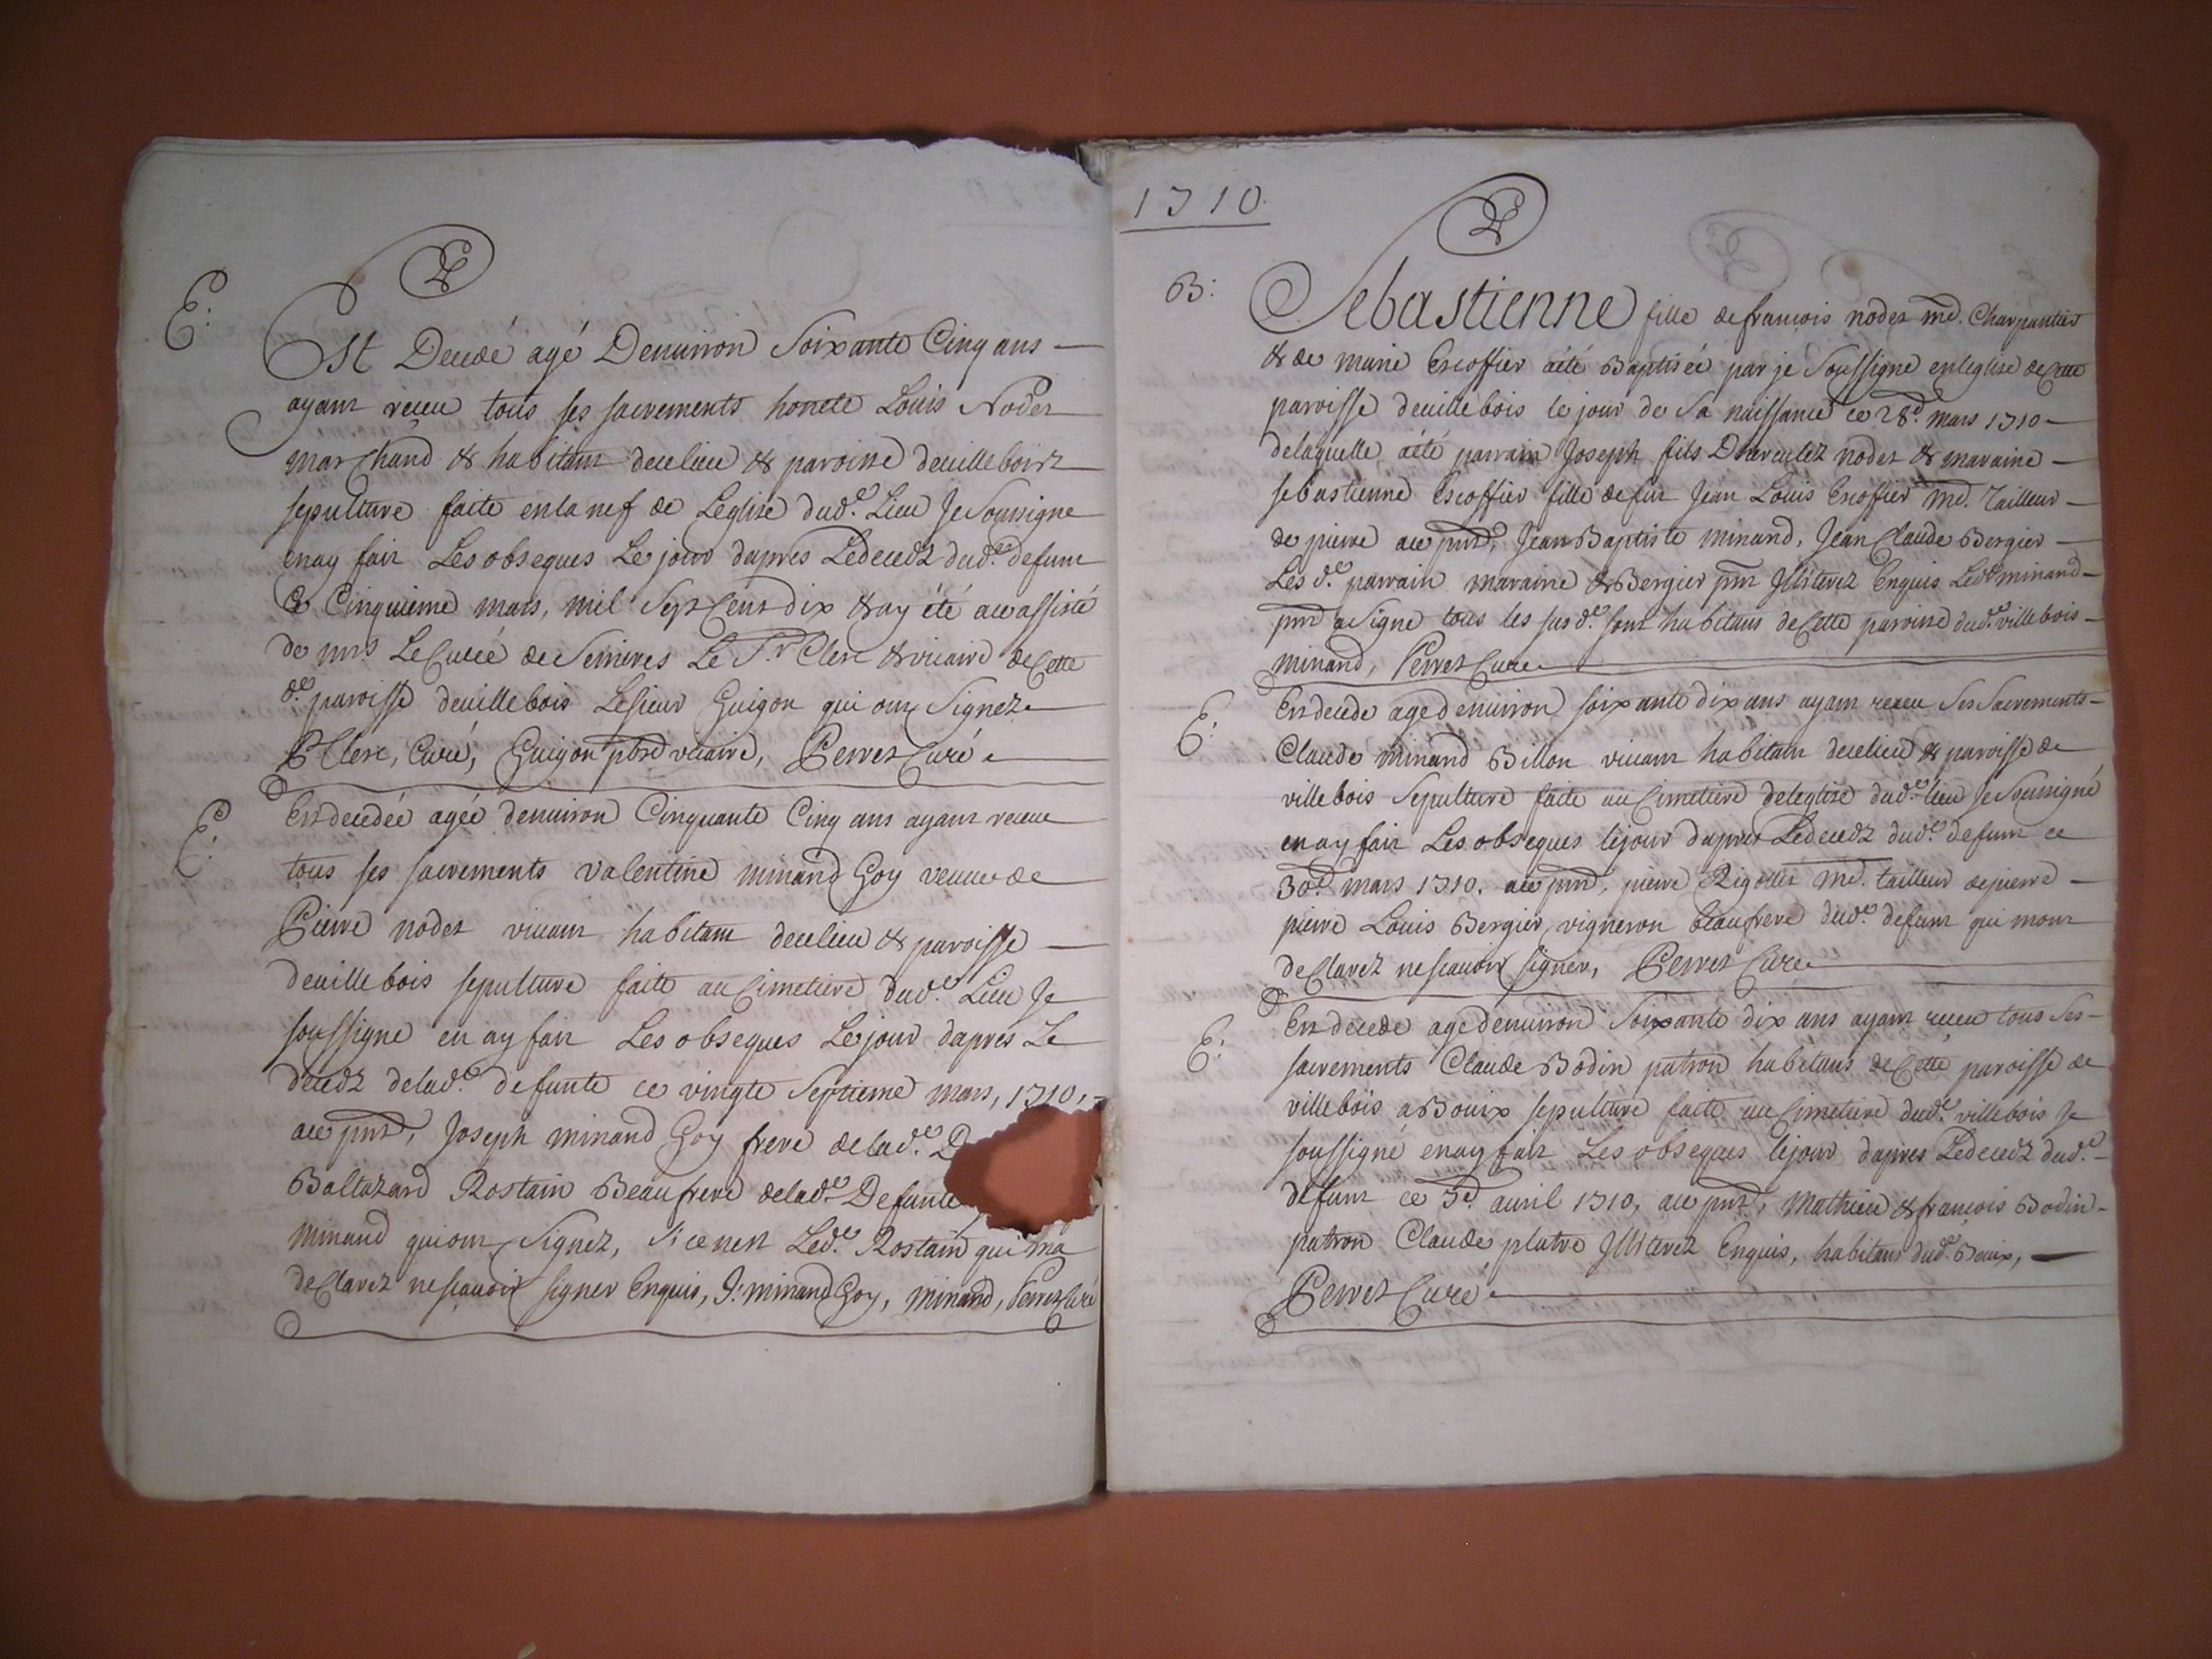 E:
Est Decedé agé Denuiron Soixante Cinq ans —
ayant reçeu tous ses sacrements honete Louis Nodet
marchand & habitant decelieu & paroisse deuillebois
sepulture faite enlanef de Leglise dud.e Lieu Je Soussigne
enay fait Les obseques Le jour dapres Ledecedz dud.e defunt
Ce Cinquieme mars, mil Sept Cent dix & ay été
de mrs Le Curé de Le Sr. Clerc & vicaire de Cette
d.e paroisse deuillebois Lesieur Guigon qui ont Signez
Clerc, Curé, Guigon pbre vicaire, Perret Curé
E:
Est decedée agée denuiron Cinquante Cinq ans ayant receue
tous ses sacrements valentine minand Goy veuue de
Pierre nodet viuant habitant decelieu & paroisse —
deuillebois sepulture faite au Cimetiere dud.e Lieu Je
soussigne en ay fait Les obseques Le jour dapres Le
decedz delad.e defunte ce vingte Septieme mars, 1710, -
ace pnt, Joseph minand Goy frere delad.e D
Baltazard Rostain Beaufrere delad.e Defunte
minand quiont Signez, Si cenest Led.e Rostain qui ma
declarez nescauoir signer Enquis, J: minand Goy, minand, Perret Curé
1710.
B:
Sebastienne fille defrancois nodet md. Charpantier
& de marie Escoffier aété Baptisée par je Soussigne enleglise de Cette
paroisse deuillebois le jour de Sa naissance ce 28.e mars 1710 —
delaquelle aété parrain Joseph fils Dherculez nodet & maraine —
sebastienne Escoffier fille defut Jean Louis Escoffier md. Tailleur —
de pierre ace pnt, Jean Baptiste minand, Jean Claude Bergier —
Les d.e parrain maraine & Bergier pnt Illiterez Enquis Led.e minand —
pnt a Signe tous les susd.e sont habitans de Cette paroisse dud.e villebois —
minand, Perret Curé
E:
Est decede agedenuiron soixante dix ans ayant receu Ses Sacrements —
Claude Minand Billon viuant habitant decelieu & paroisse de
villebois Sepulture faite au Cimetiere deleglise dud.e lieu Je Soussigné
enay fait Les obseques lejour dapres Ledecedz dud.e defunt ce
30.e mars 1710. ace pnt, pierre Rigollet Md. tailleur depierre —
pierre Louis Bergier, vigneron beaufrere dud.e defunt qui mont
declarez nescauoir signer, Perret Curé
E:
Est decede agedenuiron Soixante dix ans ayant receu tous Ses —
sacrements Claude Bodin patron habitans de Cette paroisse de
villebois a Bouix sepulture faite au Cimetiere dud.e villebois Je
soussigné enay fait Les obseques lejour dapres Ledecedz dud.e —
defunt ce 3.e auril 1710, ace pnt, Mathieu & francois Bodin —
patron Claude platre Illiterez Enquis, habitans dud.e Bouix, —
Perret Curé